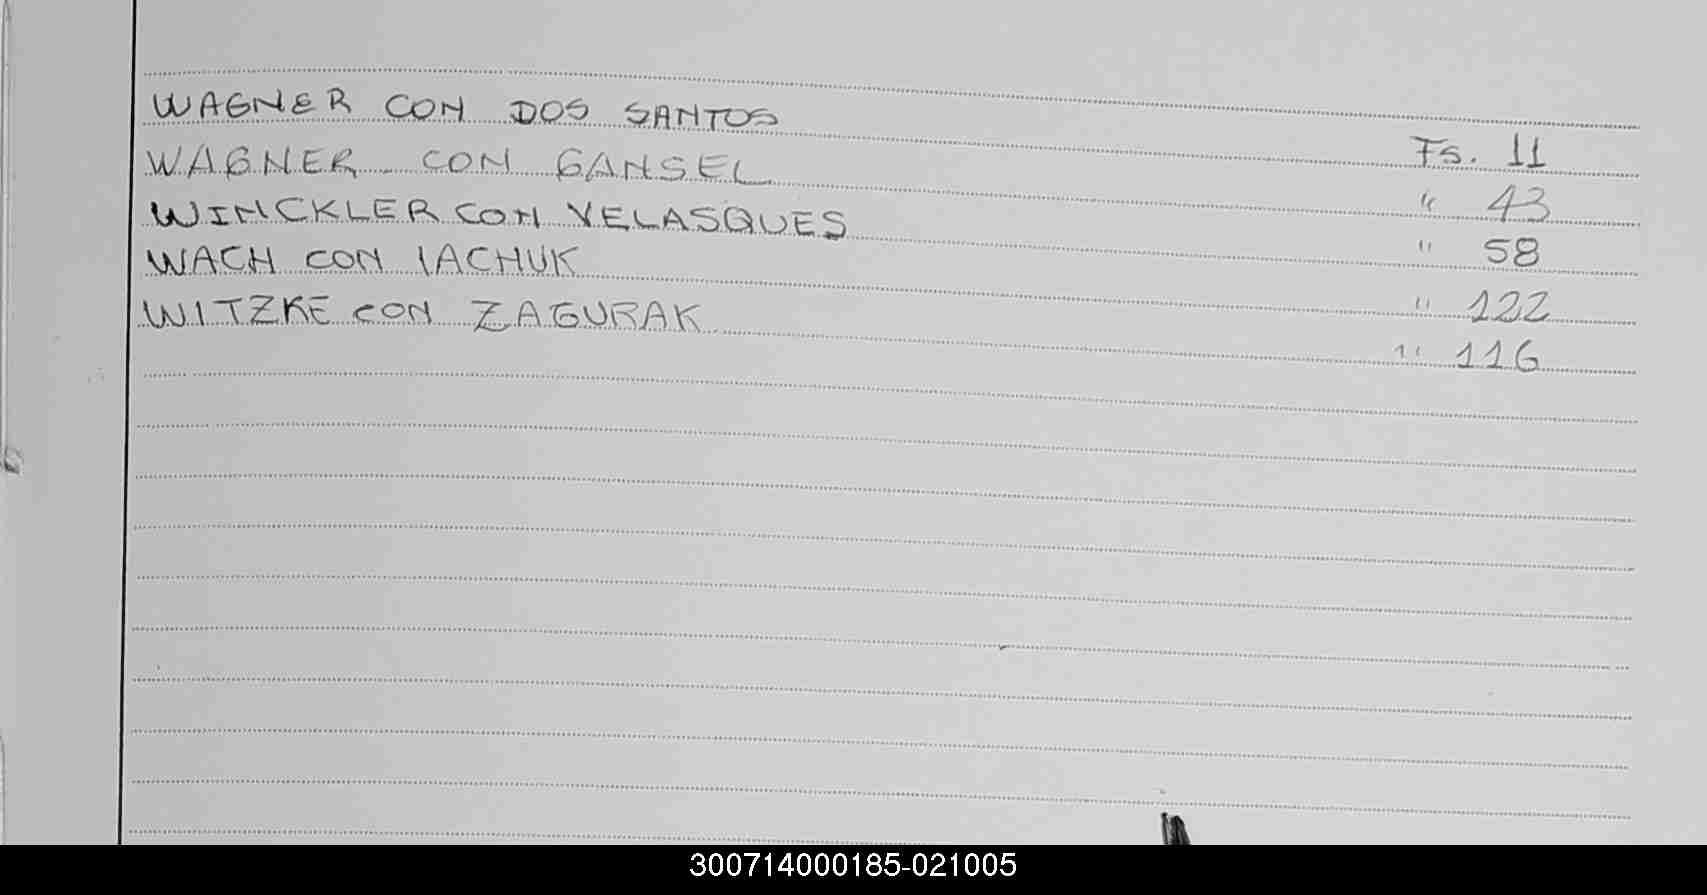 WAGNER CON DOS SANTOS Fs. 11
WAGNER CON GANSEL " 43
WINCKLER CON VELASQUES " 58
WACH CON IACHUK " 122
WITZKE CON ZAGURAK " 116
300714000185-021005